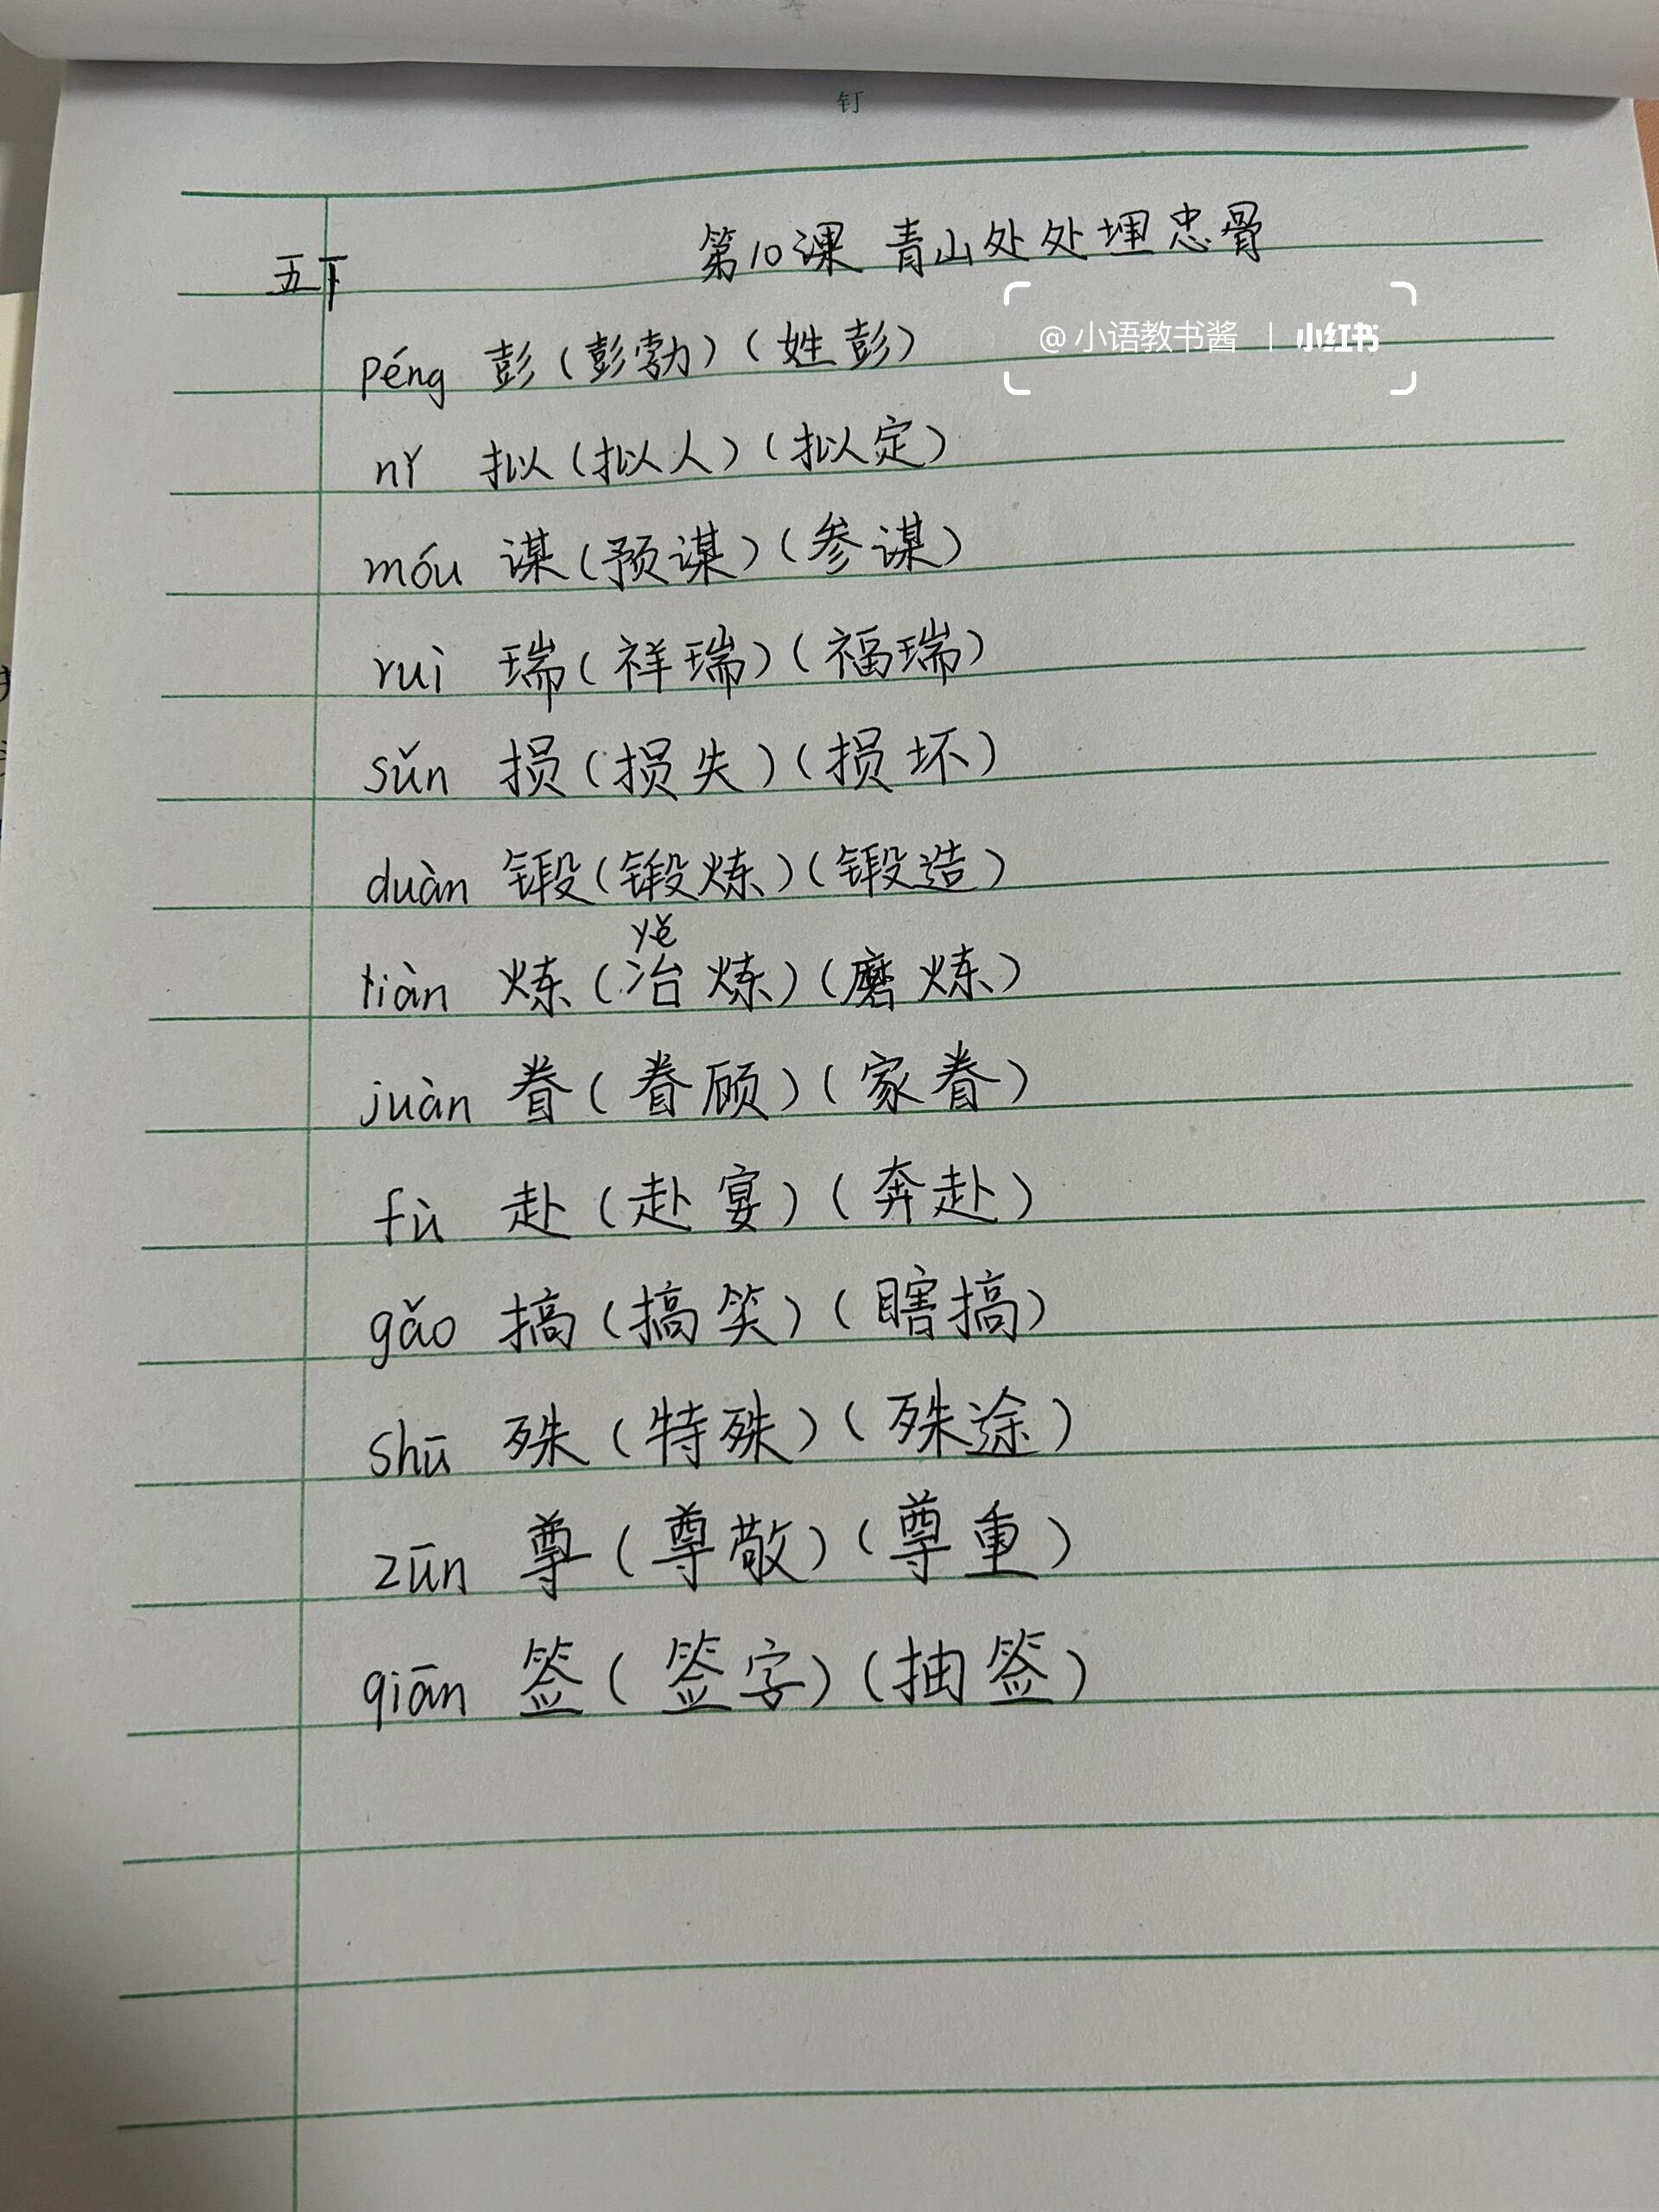 钉
五下 第10课 青山处处埋忠骨
@小语教书酱 | 小红书
péng 彭（彭勃）（姓彭）
nǐ 拟（拟人）（拟定）
móu 谋（预谋）（参谋）
ruì 瑞（祥瑞）（福瑞）
sǔn 损（损失）（损坏）
duàn 锻（锻炼）（锻造）
yě
liàn 炼（冶炼）（磨炼）
juàn 眷（眷顾）（家眷）
fù 赴（赴宴）（奔赴）
gǎo 搞（搞笑）（瞎搞）
shū 殊（特殊）（殊途）
zūn 尊（尊敬）（尊重）
qiān 签（签字）（抽签）